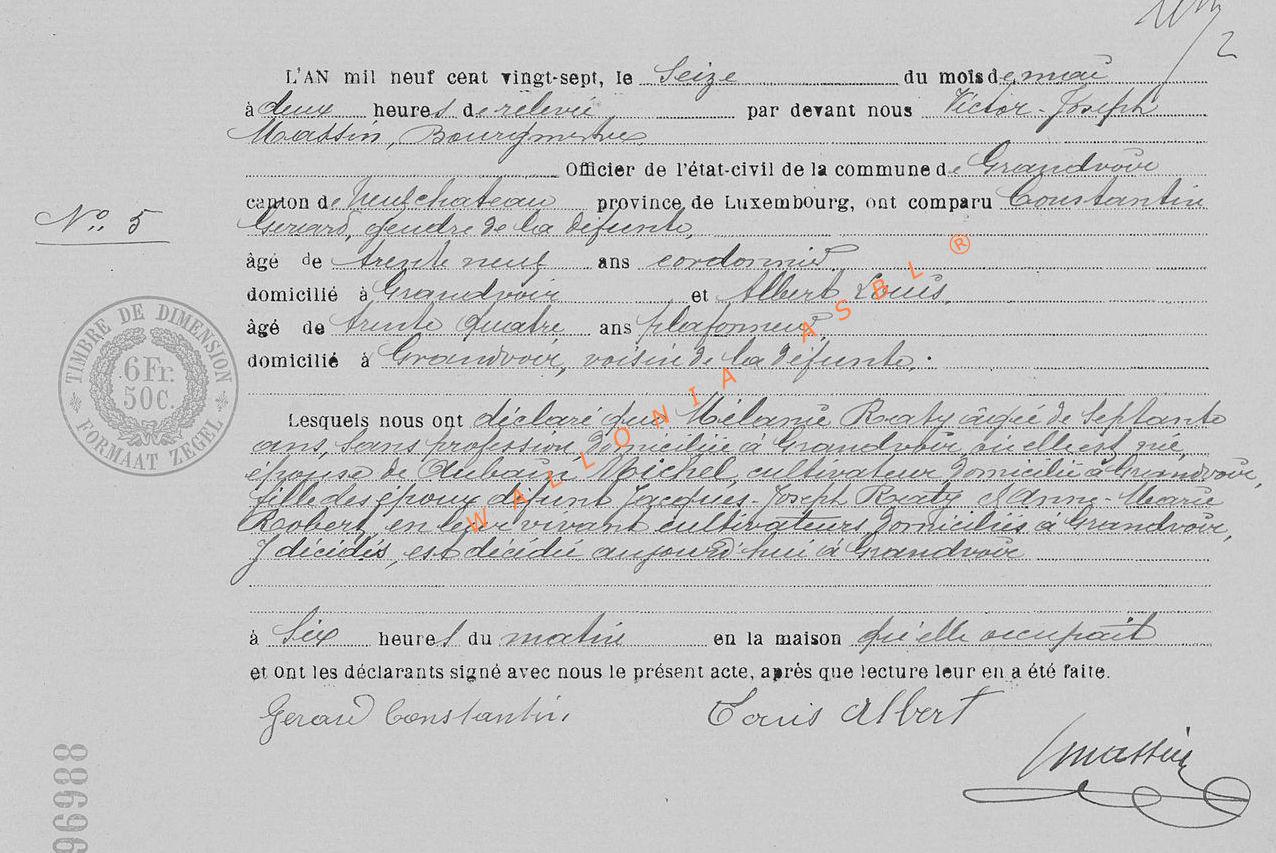 L'AN mil neuf cent vingt-sept, le Seize du mois de mai
à deux heures de relevée par devant nous Victor-Joseph
Massin, Bourgmestre
Officier de l'état-civil de la commune de Grandvoir
canton de Neufchateau province de Luxembourg, ont comparu Constantin
Gérard, gendre de la défunte,
âgé de trente neuf ans cordonnier
domicilié à Grandvoir et Albert Louis,
âgé de trente quatre ans plafonneur,
domicilié à Grandvoir, voisin de la défunte.
Lesquels nous ont déclaré que Mélanie Roxaty âgée de septante
ans, sans profession, domiciliée à Grandvoir, où elle est née,
épouse de Aubain Michel, cultivateur domicilié à Grandvoir,
fille des époux défunt Jacques-Joseph Roxaty et Anne-Marie
Robert, en leur vivant cultivateurs domiciliés à Grandvoir,
y décédés, est décédée aujourd'hui à Grandvoir
à Six heures du matin en la maison qu'elle occupait
et ont les déclarants signé avec nous le présent acte, aprés que lecture leur en a été faite.
Gerard Constantin
Louis Albert
Massin
No. 5
TIMBRE DE DIMENSION
6 Fr.
50C.
FORMAAT ZEGEL
96988
WALLONIA ASBL ®